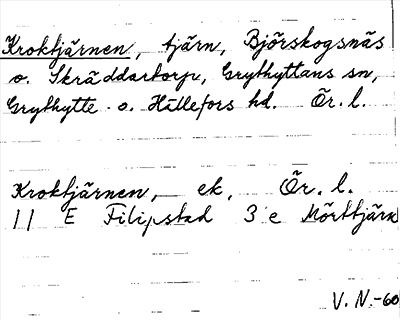 Kroktjärnen, tjärn, Björskogsnäs
o. Skräddartorp, Grythyttans sn,
Grythytte o. Hällefors hd. Ör. l.
Kroktjärnen, ek, Ör. l.
11 E Filipstad 3 e Mörttjärn
V. N.-60